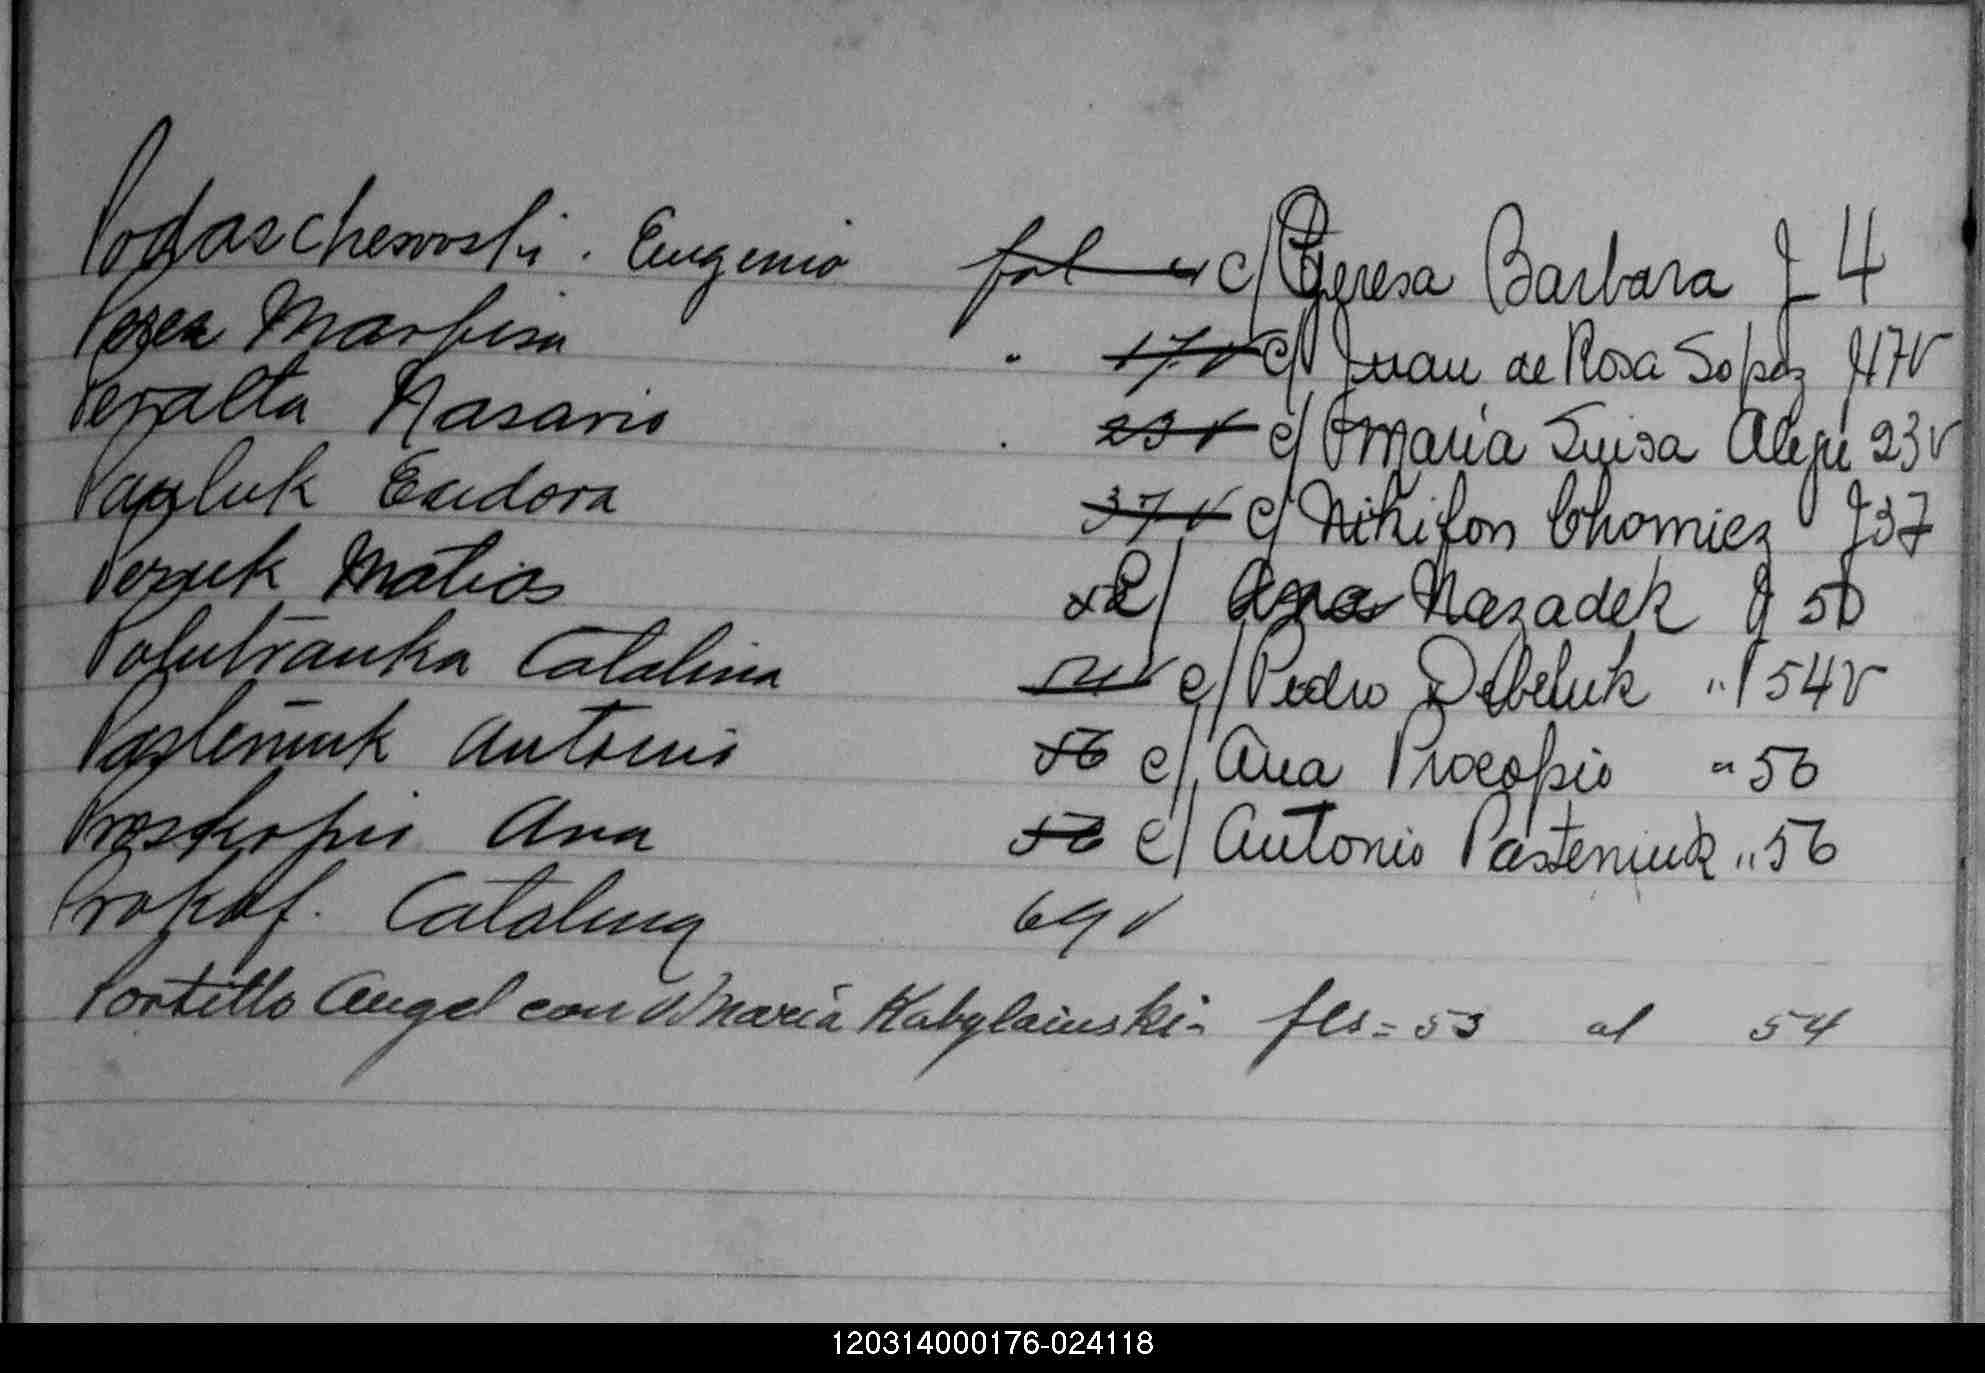 Podaschewski. Eugenio fol 4 c/ Teresa Barbara f 4
Perez Marfisa " 17 v c/ Juan de Rosa Lopez f 17 v
Peralta Nasario " 23 v c/ Maria Luisa Alegre 23 v
Pauluk Eudora 37 v c/ Nikifon Chomicz f 37
Persuk Matias c/ Ana Nazadek f 50
Polutranka Catalina 54 v c/ Pedro Debeluk " f 54 v
Pasteniuk Antonio 56 c/ Ana Procopio " 56
Proskopio Ana 56 c/ Antonio Pasteniuk " 56
Prokof. Catalina 69 v
Portillo Angel con Maria Kabylainski - fls = 53 al 54
120314000176-024118